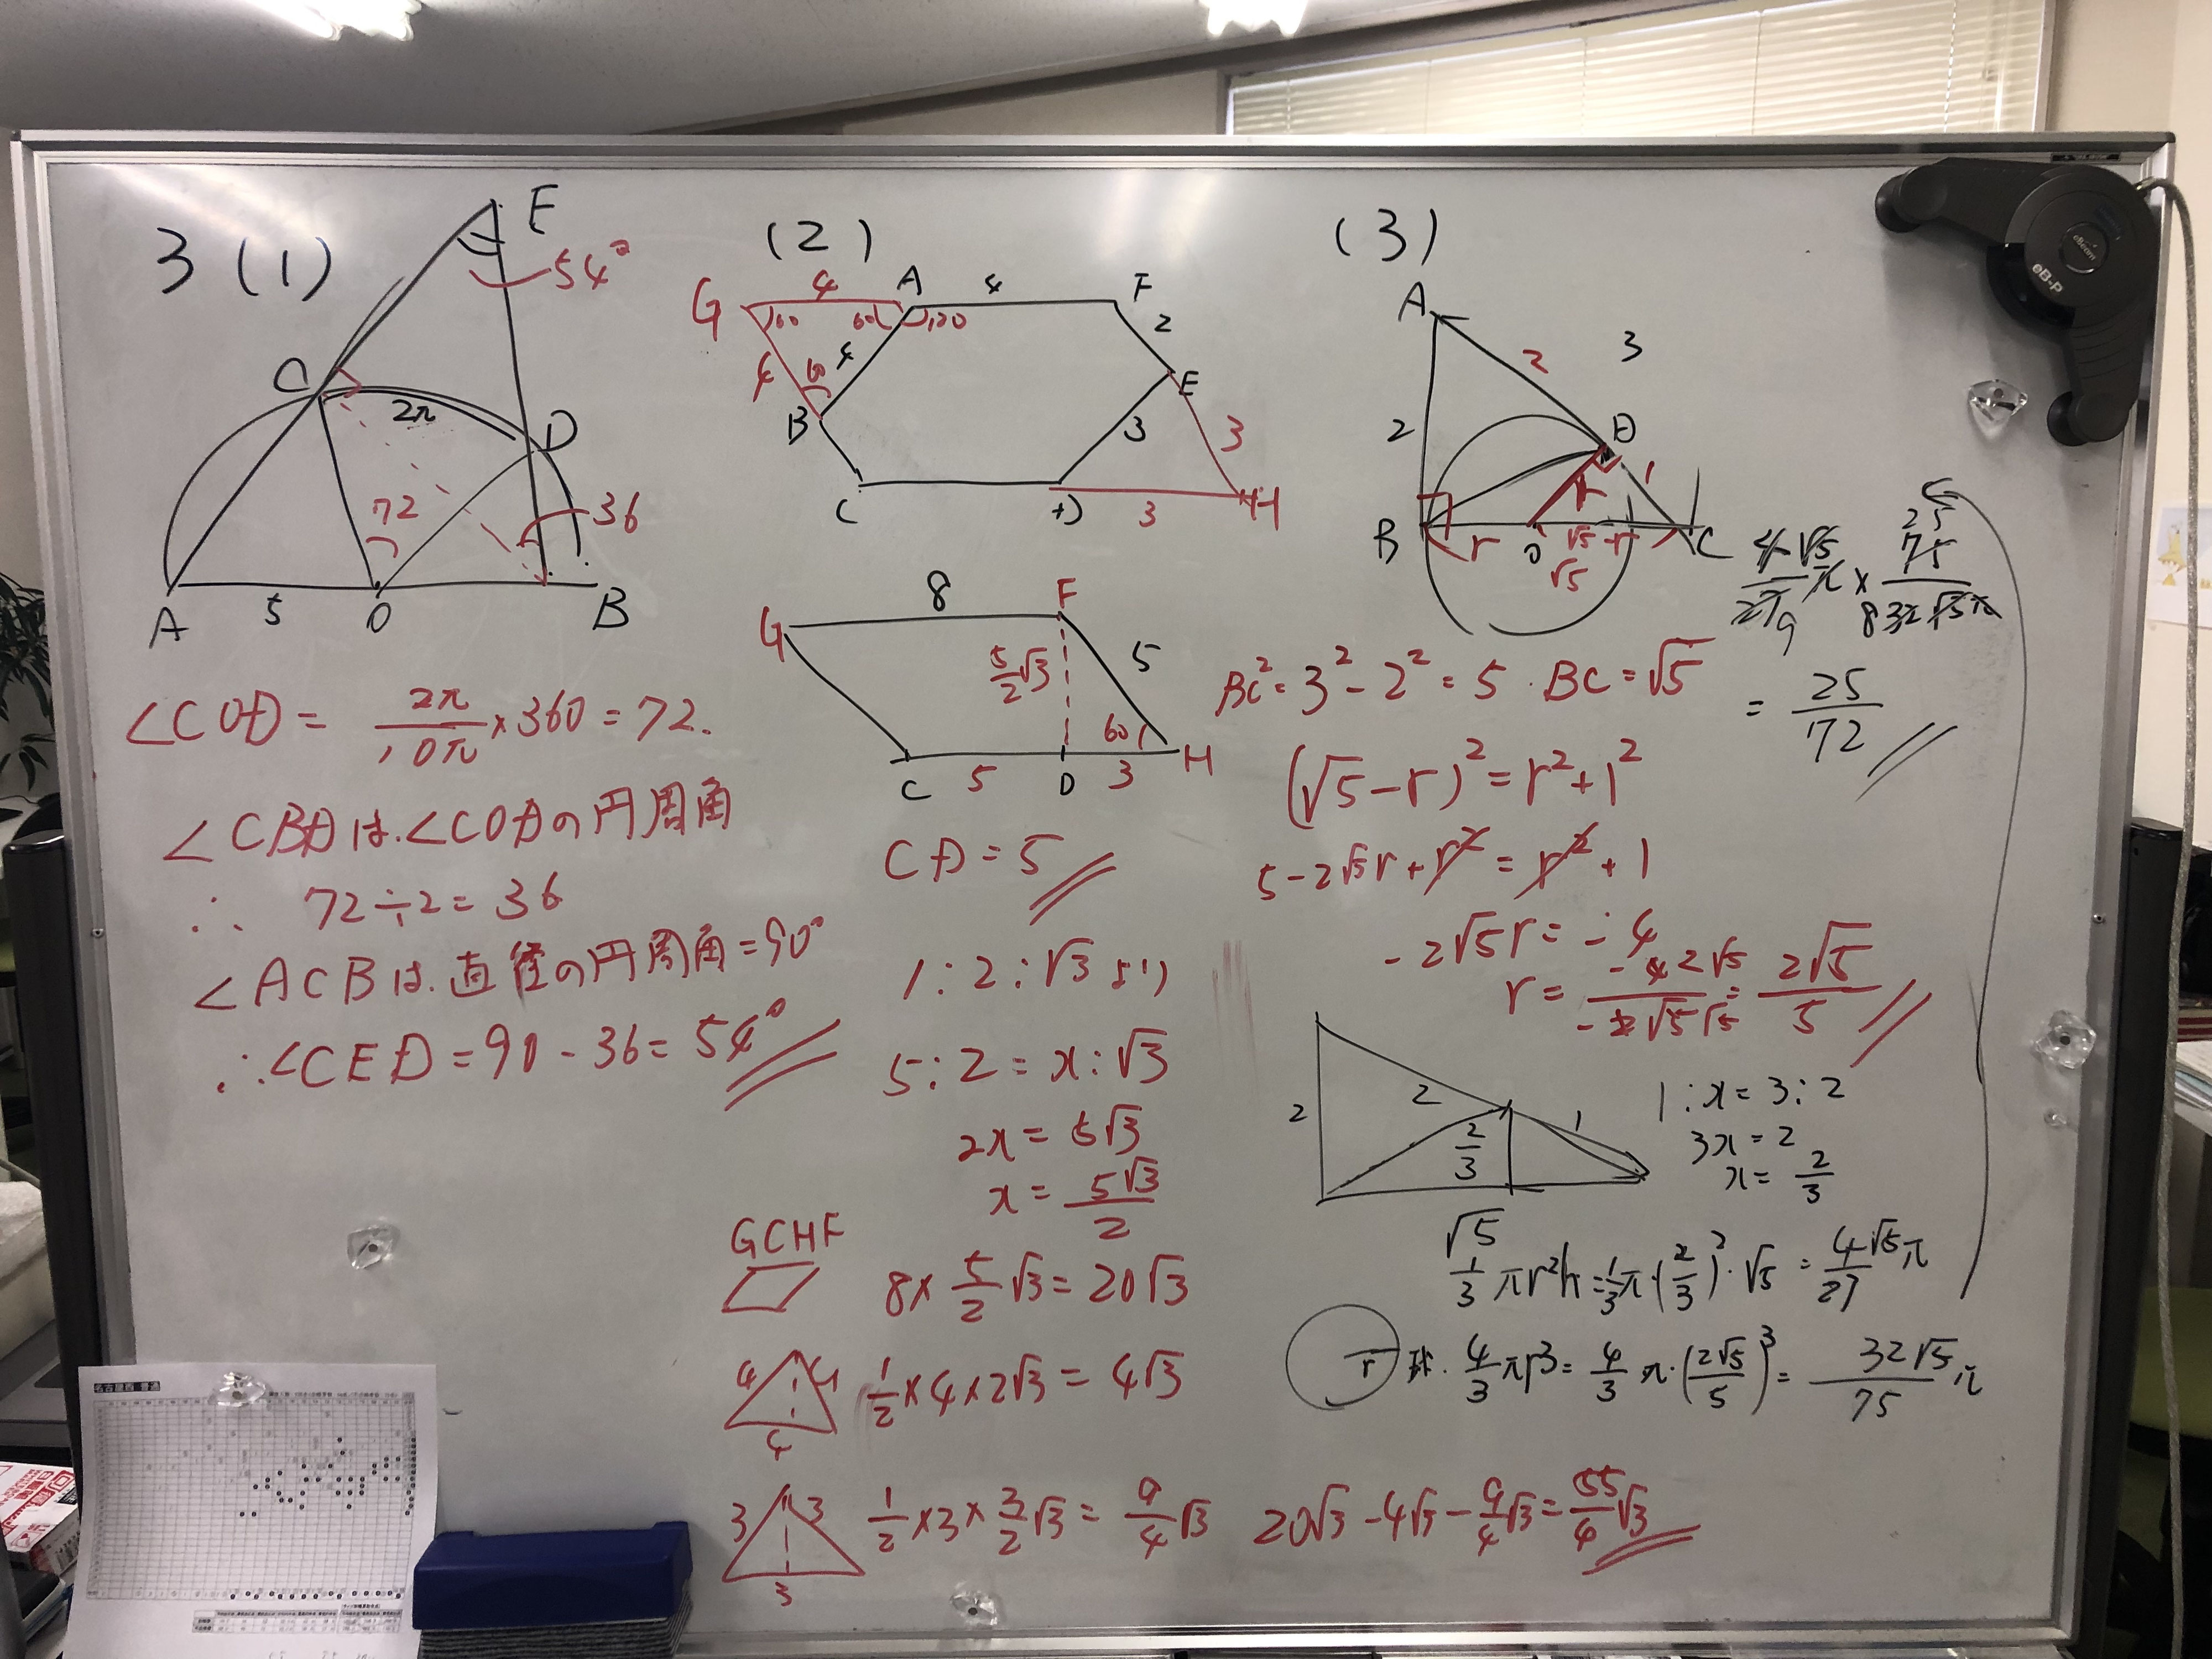 3 (1)
E
54°
C
2π
D
72
36
A
5
O
B
∠COD = 2π/10π × 360 = 72.
∠CBDは.∠CODの円周角
∴ 72÷2 = 36
∠ACBは.直径の円周角=90°
∴∠CED = 90 - 36 = 54°
(2)
G
4
A
4
F
60
60
120
2
4
60
4
E
B
3
3
C
D
3
H
8
G
F
5/2√3
5
60
C
5
D
3
H
CD = 5
1 : 2 : √3 より
5 : 2 = x : √3
2x = 5√3
x = 5√3/2
GCHF
8 × 5/2 √3 = 20√3
4
4
4
1/2 × 4 × 2√3 = 4√3
3
3
3
1/2 × 3 × 3/2 √3 = 9/4 √3
20√3 - 4√3 - 9/4 √3 = 55/4 √3
(3)
A
2
3
2
D
1
r
B
r
O
√5-r
C
√5
BC² = 3² - 2² = 5 . BC = √5
(√5 - r)² = r² + 1²
5 - 2√5r + r² = r² + 1
-2√5r = -4
r = -4 2√5/-2√5 √5 = 2√5/5
2
2
2/3
1
√5
1 : x = 3 : 2
3x = 2
x = 2/3
1/3 πr²h = 1/3 π·(2/3)²·√5 = 4√5/27 π
r
球. 4/3 πr³ = 4/3 π·(2√5/5)³ = 32√5/75 π
4√5/27 π × 75/32√5π
9
25
8
= 25/72
eBeam
eB-P
名古屋西 普通